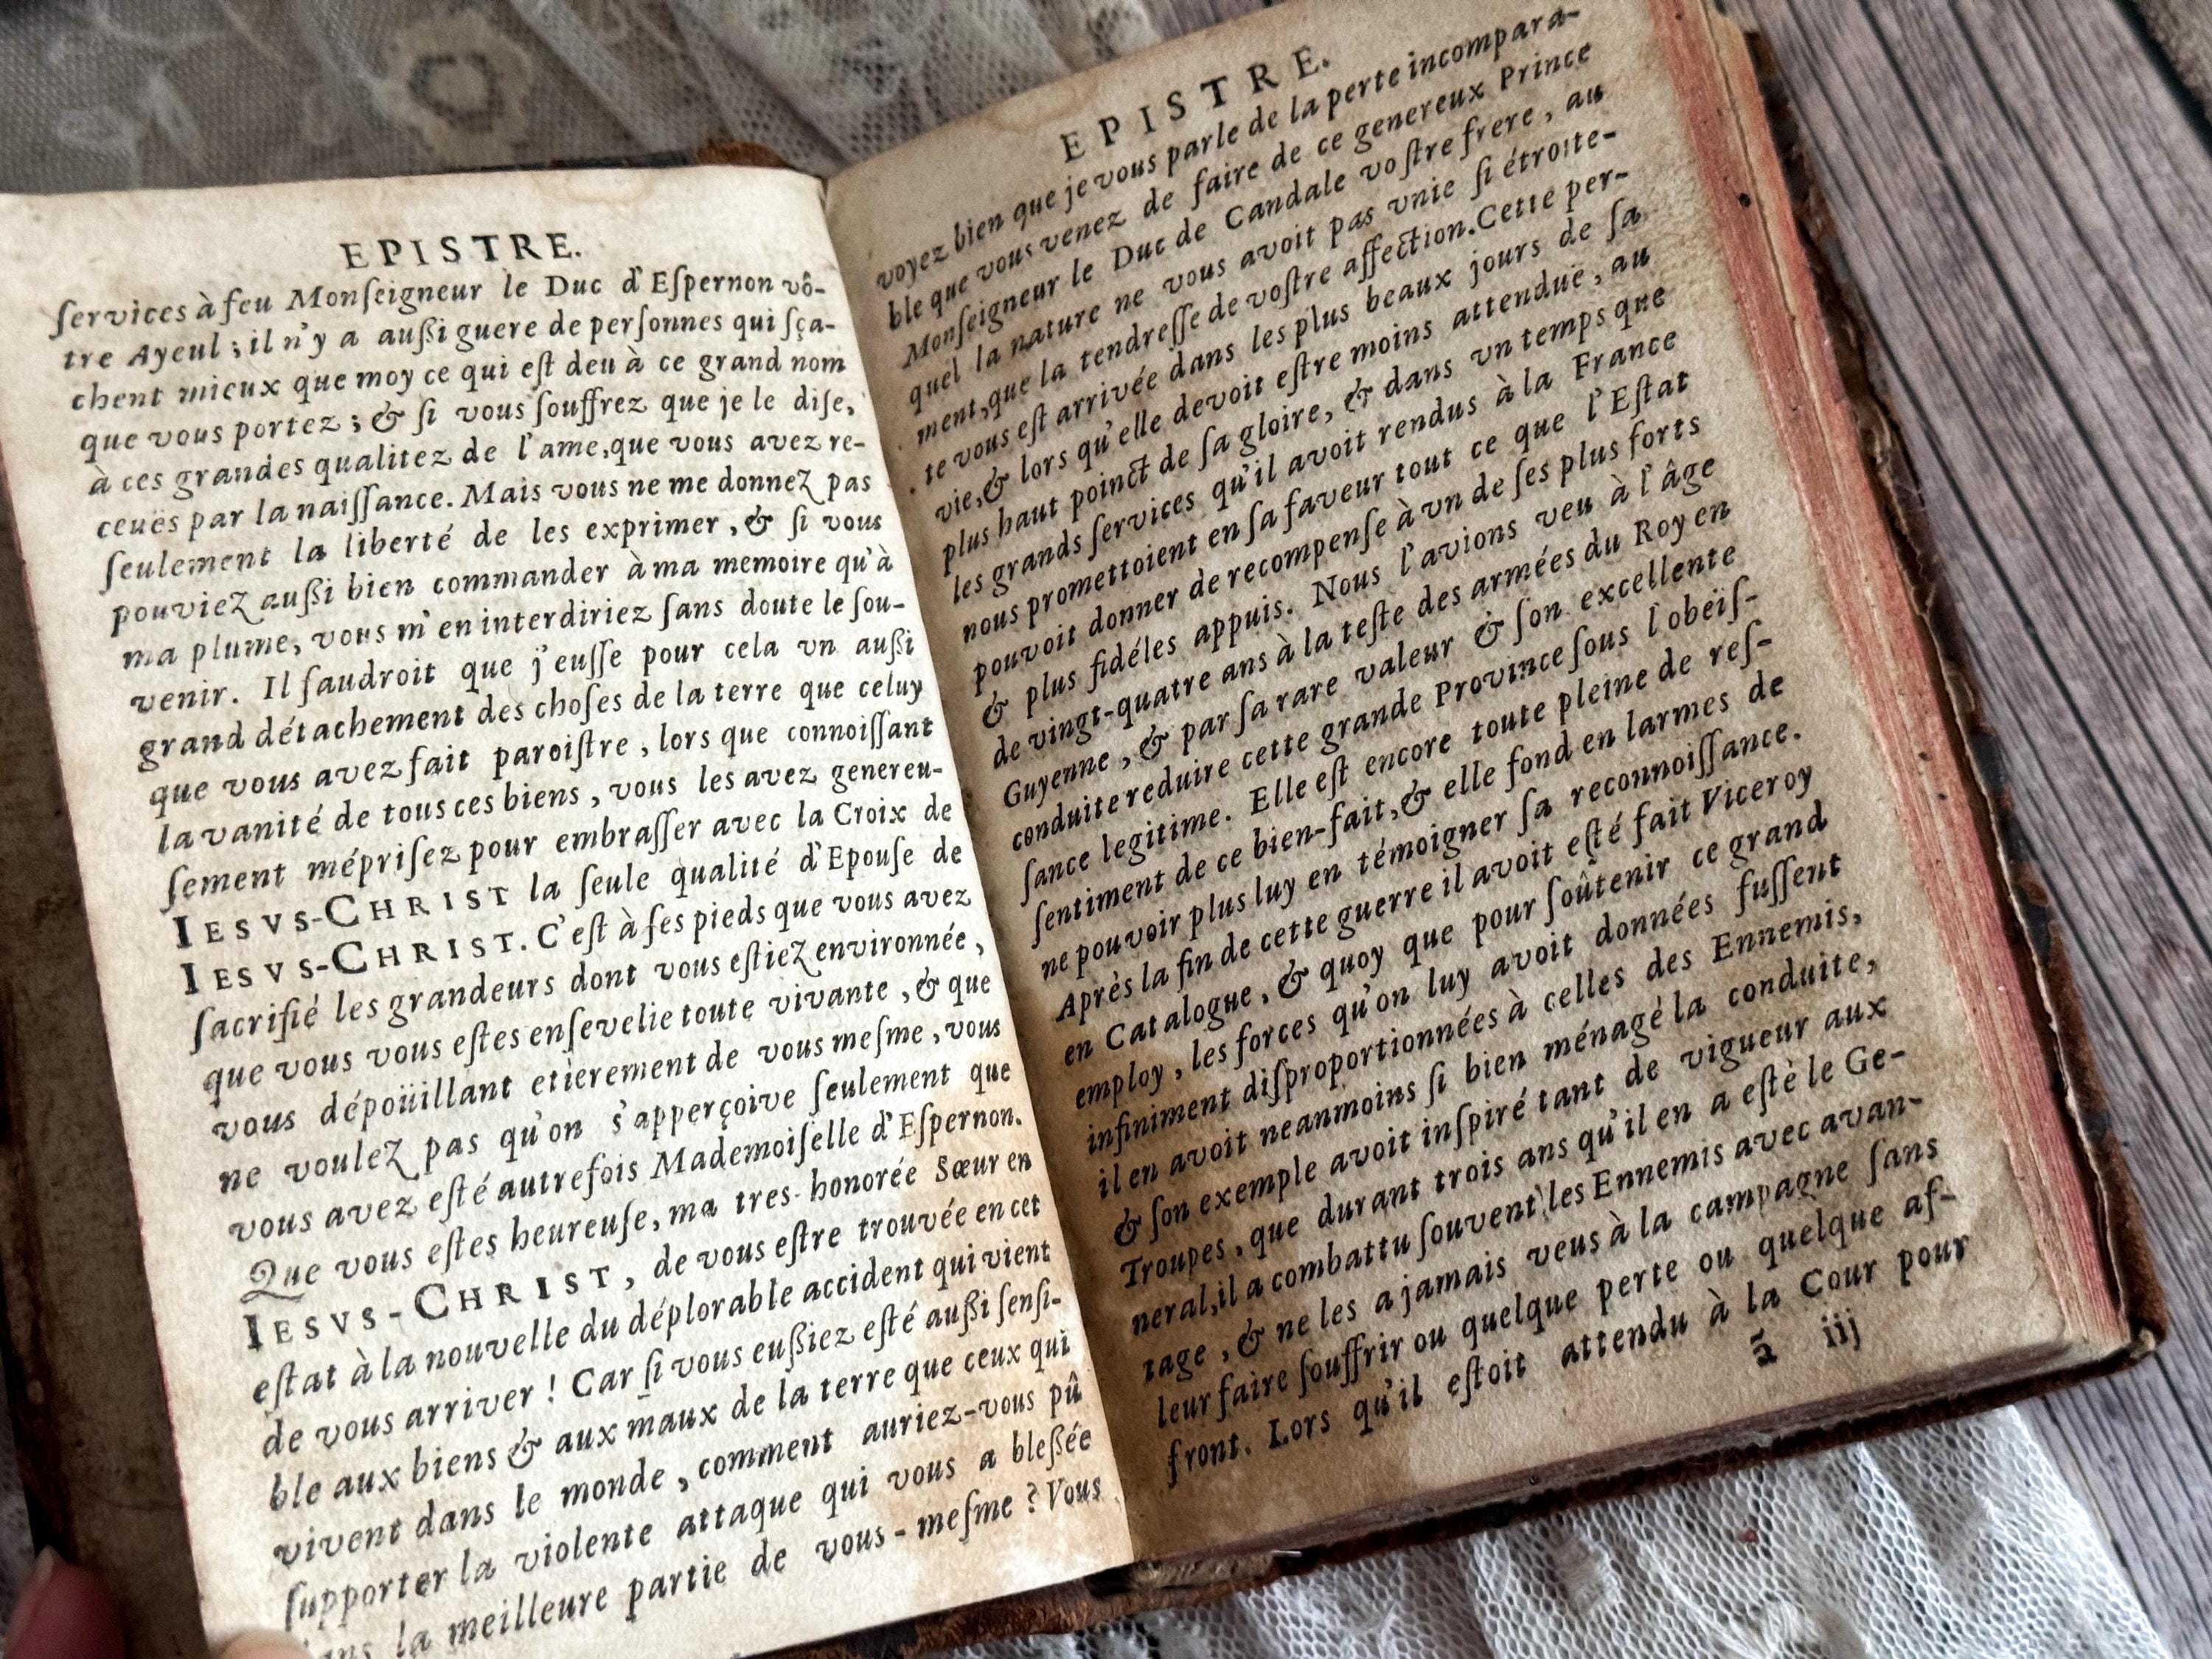 EPISTRE.
ſervices à feu Monſeigneur le Duc d'Eſpernon vô-
tre Ayeul ; il n'y a auſſi guere de perſonnes qui ſça-
chent mieux que moy ce qui eſt deu à ce grand nom
que vous portez ; & ſi vous ſouffrez que je le diſe,
à ces grandes qualitez de l'ame, que vous avez re-
ceuës par la naiſſance. Mais vous ne me donnez pas
ſeulement la liberté de les exprimer, & ſi vous
pouviez auſſi bien commander à ma memoire qu'à
ma plume, vous m'en interdiriez ſans doute le ſou-
venir. Il faudroit que j'euſſe pour cela vn auſſi
grand détachement des choſes de la terre que celuy
que vous avez fait paroiſtre, lors que connoiſſant
la vanité de tous ces biens, vous les avez genereu-
ſement mépriſez pour embraſſer avec la Croix de
IESVS-CHRIST la ſeule qualité d'Epouſe de
IESVS-CHRIST. C'eſt à ſes pieds que vous avez
ſacrifié les grandeurs dont vous eſtiez environnée,
que vous vous eſtes enſevelie toute vivante, & que
vous dépoüillant etierement de vous meſme, vous
ne voulez pas qu'on s'apperçoive ſeulement que
vous avez eſté autrefois Mademoiſelle d'Eſpernon.
Que vous eſtes heureuſe, ma tres-honorée Sœur en
IESVS-CHRIST, de vous eſtre trouvée en cet
eſtat à la nouvelle du déplorable accident qui vient
de vous arriver ! Car ſi vous euſſiez eſté auſſi ſenſi-
ble aux biens & aux maux de la terre que ceux qui
vivent dans le monde, comment auriez-vous pû
ſupporter la violente attaque qui vous a bleſſée
dans la meilleure partie de vous-meſme ? Vous
EPISTRE.
voyez bien que je vous parle de la perte incompara-
ble que vous venez de faire de ce genereux Prince
Monſeigneur le Duc de Candale voſtre frere, au
quel la nature ne vous avoit pas vnie ſi étroite-
ment, que la tendreſſe de voſtre affection. Cette per-
te vous eſt arrivée dans les plus beaux jours de ſa
vie, & lors qu'elle devoit eſtre moins attenduë, au
plus haut poinct de ſa gloire, & dans vn temps que
les grands ſervices qu'il avoit rendus à la France
nous promettoient en ſa faveur tout ce que l'Eſtat
pouvoit donner de recompenſe à vn de ſes plus forts
& plus fidéles appuis. Nous l'avions veu à l'âge
de vingt-quatre ans à la teſte des armées du Roy en
Guyenne, & par ſa rare valeur & ſon excellente
conduite reduire cette grande Province ſous l'obeïſ-
ſance legitime. Elle eſt encore toute pleine de reſ-
ſentiment de ce bien-fait, & elle fond en larmes de
ne pouvoir plus luy en témoigner ſa reconnoiſſance.
Aprés la fin de cette guerre il avoit eſté fait Viceroy
en Catalogne, & quoy que pour ſoûtenir ce grand
employ, les forces qu'on luy avoit données fuſſent
infiniment diſproportionnées à celles des Ennemis,
il en avoit neanmoins ſi bien ménagé la conduite,
& ſon exemple avoit inſpiré tant de vigueur aux
Troupes, que durant trois ans qu'il en a eſté le Ge-
neral, il a combattu ſouvent les Ennemis avec avan-
tage, & ne les a jamais veus à la campagne ſans
leur faire ſouffrir ou quelque perte ou quelque af-
front. Lors qu'il eſtoit attendu à la Cour pour
ã iij